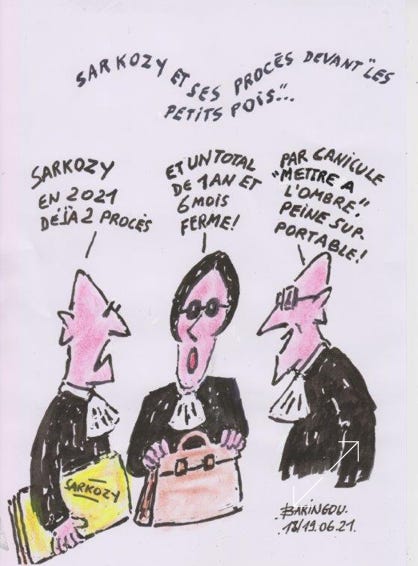 SARKOZY ET SES PROCÉS DEVANT "LES
PETITS POIS"...
SARKOZY
EN 2021
DÉJÀ 2 PROCÉS
ET UN TOTAL
DE 1 AN ET
6 MOIS
FERME!
PAR CANICULE
"METTRE A
L'OMBRE",
PEINE SUP-
PORTABLE!
SARKOZY
BARINGOU.
18/19.06.21.